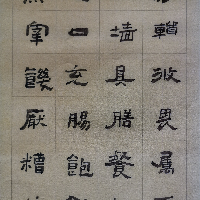 輶攸畏屬
墻具膳餐
口充腸飽
宰饑厭糟